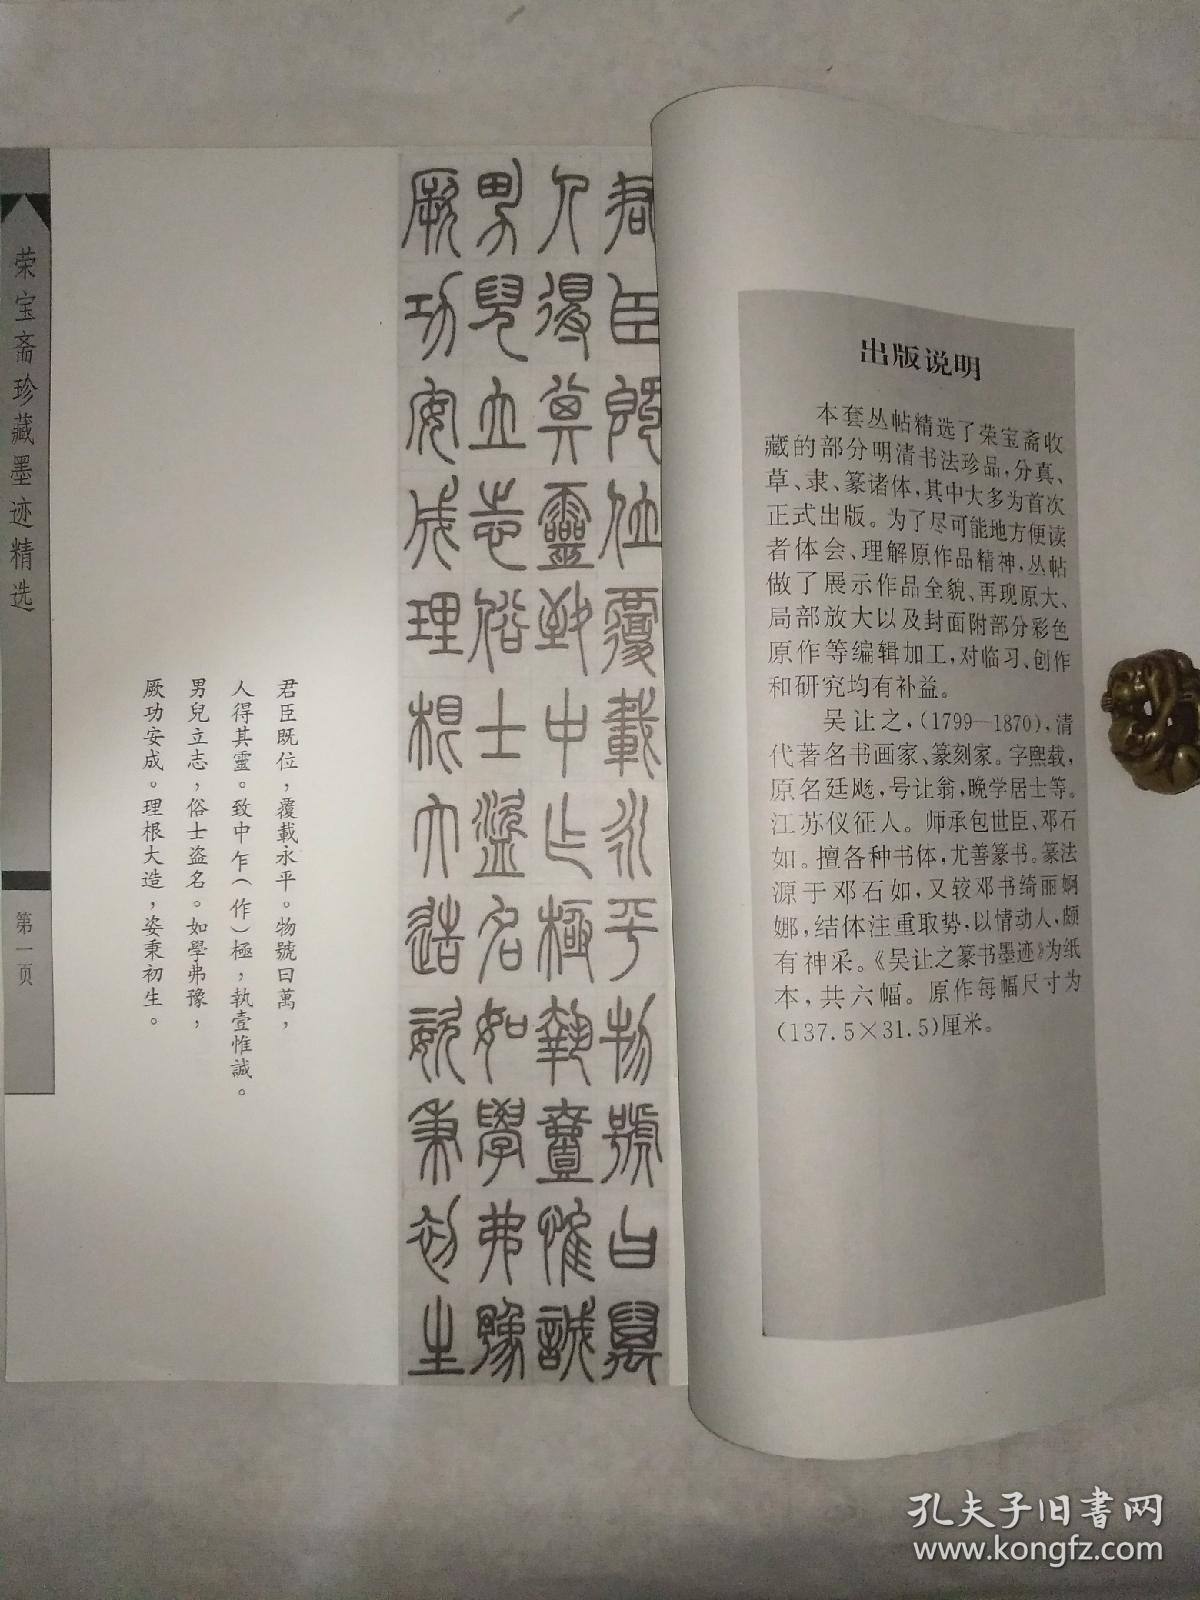 出版说明
本套丛帖精选了荣宝斋收
藏的部分明清书法珍品，分真、
草、隶、篆诸体，其中大多为首次
正式出版。为了尽可能地方便读
者体会、理解原作品精神，丛帖
做了展示作品全貌、再现原大、
局部放大以及封面附部分彩色
原作等编辑加工，对临习、创作
和研究均有补益。
吴让之，(1799—1870)，清
代著名书画家、篆刻家。字熙载，
原名廷飏，号让翁，晚学居士等。
江苏仪征人。师承包世臣、邓石
如。擅各种书体，尤善篆书。篆法
源于邓石如，又较邓书绮丽婀
娜，结体注重取势，以情动人，颇
有神采。《吴让之篆书墨迹》为纸
本，共六幅。原作每幅尺寸为
(137.5×31.5)厘米。
君臣既位覆載永平物號曰萬
人得其靈致中乍極執壹惟誠
男兒立志俗士盜名如學弗豫
厥功安成理根大造姿秉初生
君臣既位，覆載永平。物號曰萬，
人得其靈。致中乍(作)極，執壹惟誠。
男兒立志，俗士盗名。如學弗豫，
厥功安成。理根大造，姿秉初生。
荣宝斋珍藏墨迹精选
第一页
孔夫子旧书网
www.kongfz.com